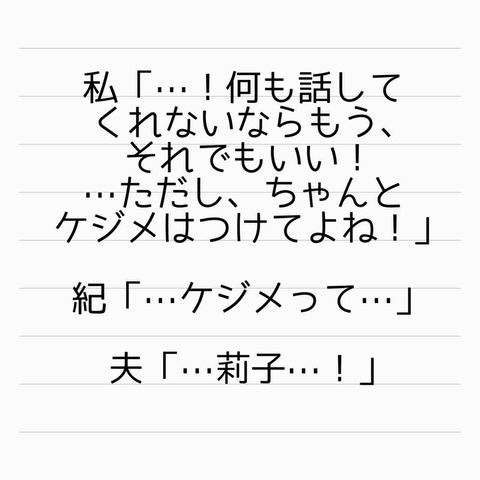 私「…！何も話して
くれないならもう、
それでもいい！
…ただし、ちゃんと
ケジメはつけてよね！」
紀「…ケジメって…」
夫「…莉子…！」